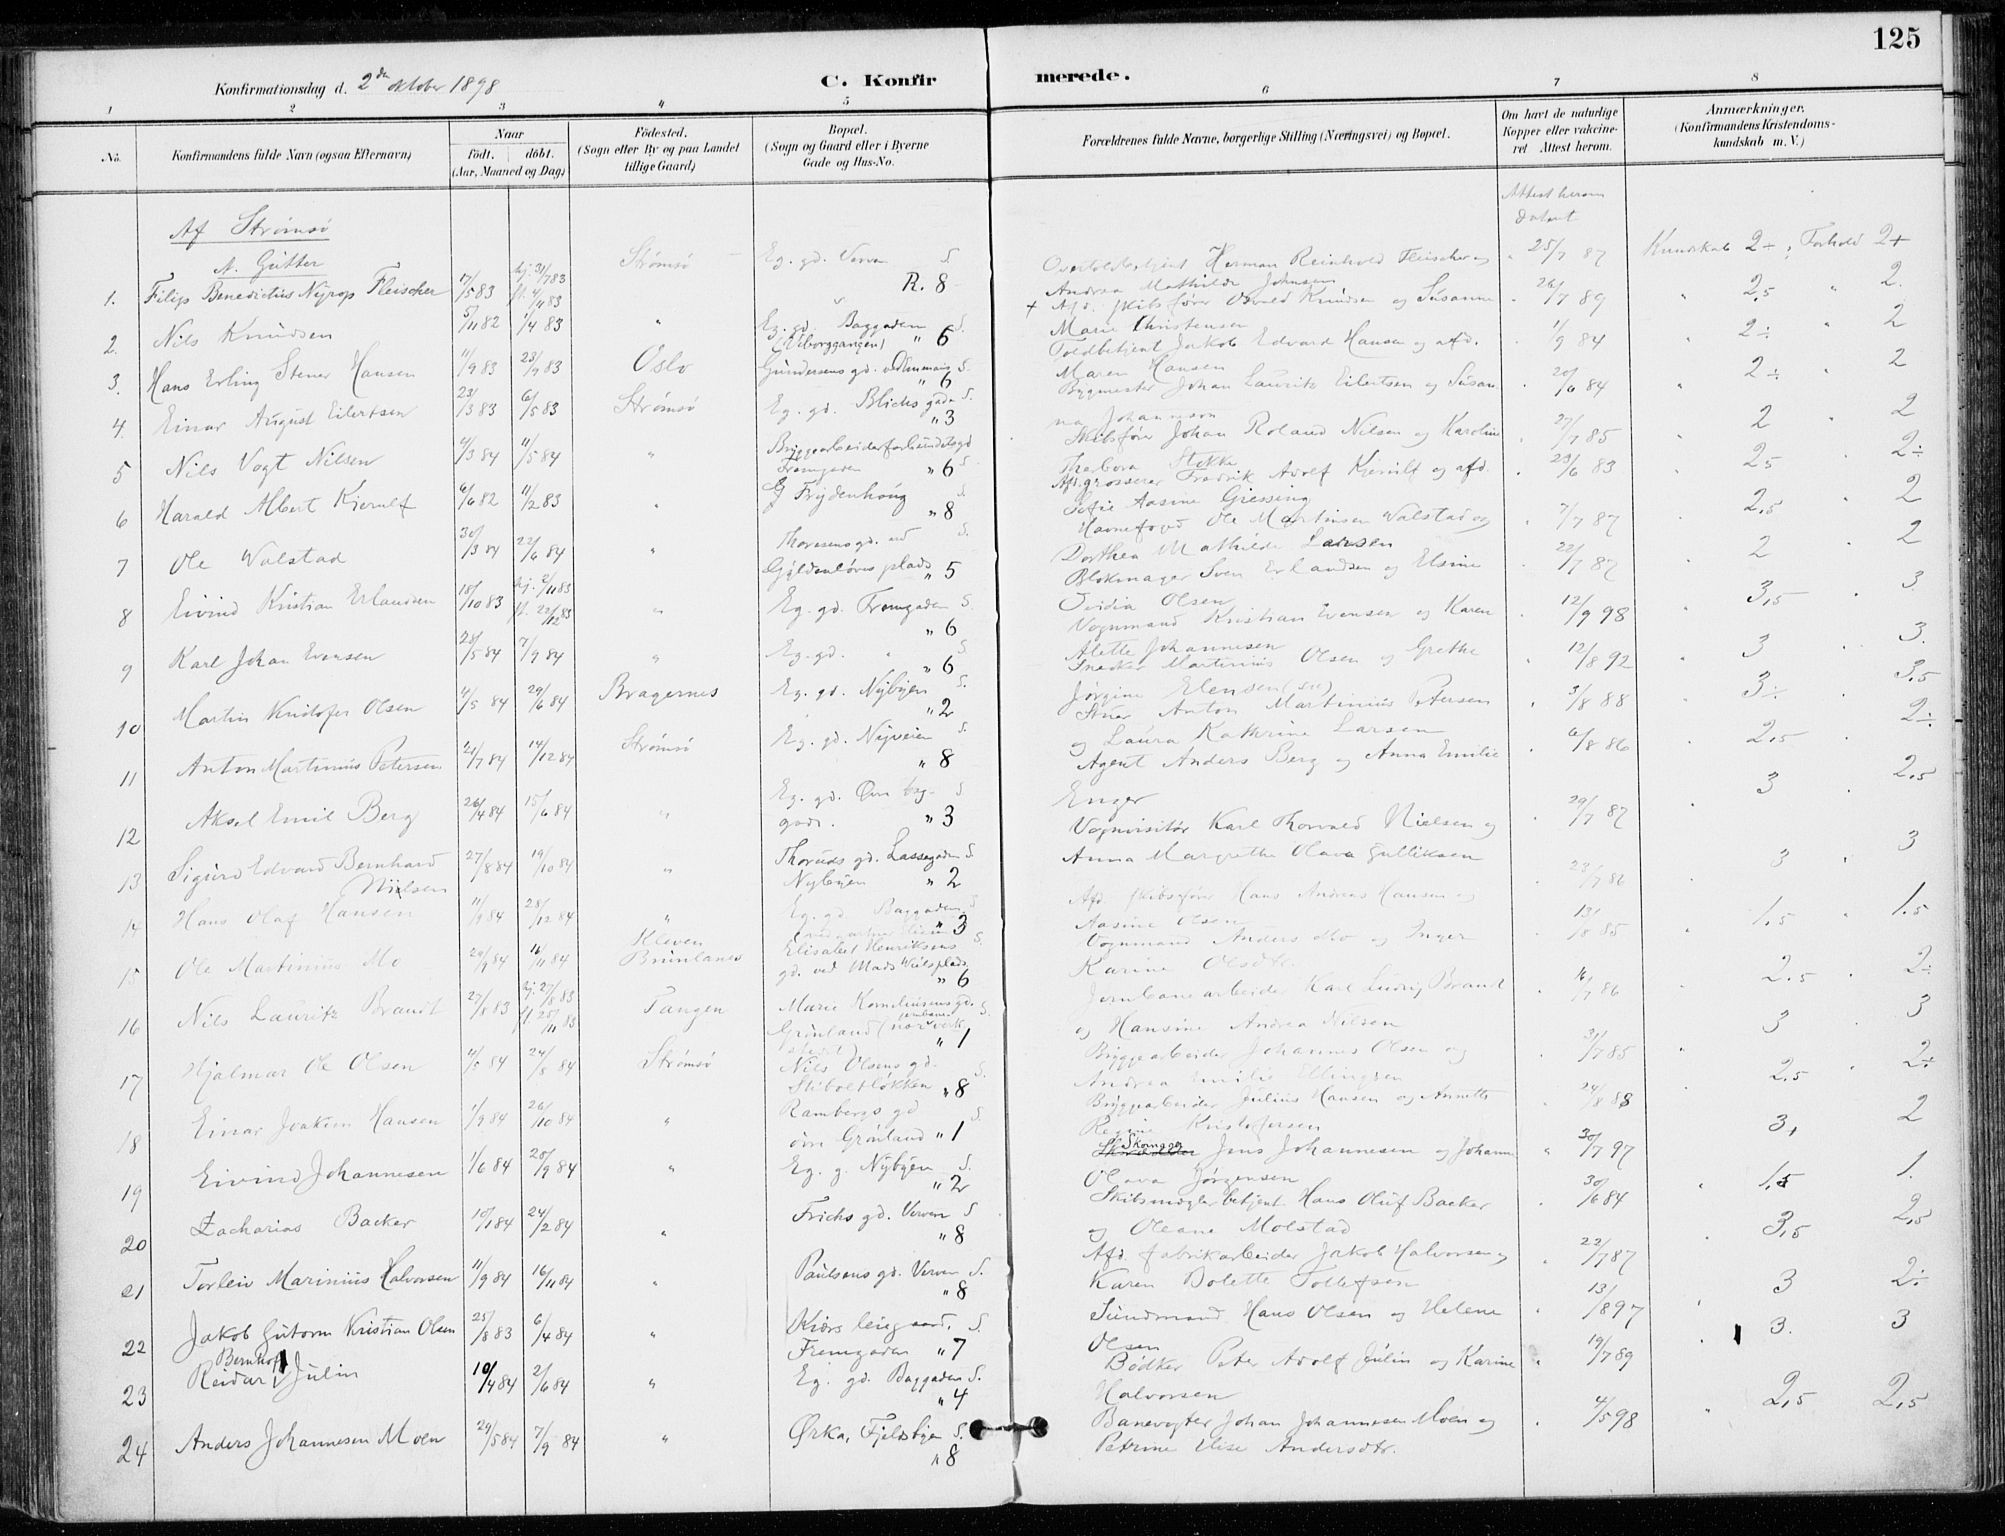 125
Konfirmationsdag d. 2den oktober 1898
C. Konfirmerede.
1 2 3 4 5 6 7 8
No.
Konfirmandens fulde Navn (ogsaa Efternavn)
Naar
födt. döbt.
(Aar, Maaned og Dag)
Födested.
(Sogn eller By og paa Landet
tillige Gaard)
Bopæl.
(Sogn og Gaard eller i Byerne
Gade og Hus-No.
Forældrenes fulde Navne, borgerlige Stilling (Næringsvei) og Bopæl.
Om havt de naturlige
Kopper eller vakcine-
ret Attest herom.
Anmærkninger.
(Konfirmandens Kristendoms-
kundskab m. V.)
Attest herom
datert
Af Strømsø
A. Gutter
1. Filip Benedictus Nyrop Fleischer 17/5 83 hj. 31/7 83 Strømsø Eg. gd. Verven S. R. 8
Herman Reinhold Fleischer og
Andrea Mathilde Johnsen 25/7 87 Kundskab 2÷; Forhold 2+
2. Nils Knudsen 5/11 82 1/4 83 " Eg. gd. Baggaden S. (Viborggangen) " 6
+ Afd. skibsfører Osvald Knudsen og Susanne
Marie Christensen 26/7 89 " 2,5 " 2.
3. Hans Erling Stener Hansen 11/9 83 23/9 83 Oslo Gundersens gd. S. " 6
Toldbetjent Jakob Edvard Hansen og afd.
Maren Hansen 1/9 84 2÷ " 2
4. Einar August Eilertsen 23/3 83 6/5 83 Strømsø Eg. gd. Blichs gade S. " 3
Bygmester Johan Lauritz Eilertsen og Susan
na Johannesen 20/6 84 " 2÷ " 2
5 Nils Vogt Nilsen 4/3 84 11/5 84 " Bryggearbeiderforbundets gd
Fremgaden " 6 S.
Skibsfører Johan Roland Nilsen og Karoline
Thorbora Stokke 27/7 85 " 2 " 2
6 Harald Albert Kjerulf 6/6 82 11/2 83 " Frydenhaug S. " 8
Afd. grosserer Fredrik Adolf Kjerulf og afd.
Sofie Aasine Giessing 23/6 83 2,5 2÷
7 Ole Walstad 30/3 84 22/6 84 " Thoresens gd. ved S.
Gyldenløves plads " 5
Havnefoged Ole Martinsen Walstad og
Dorthea Mathilde Larsen 7/7 87 2,5 " 2
8 Eivind Kristian Erlandsen 18/10 83 hj. 2/11 83 fl. 22/12 83 " Eg. gd. Fremgaden S. " 6
Blokmager Sven Erlandsen og Elsine
Ovidia Olsen 22/7 87 2 " 2
9 Karl Johan Evensen 28/5 84 7/9 84 " Eg. gd. " S. " 6
Vognmand Kristian Evensen og Karen
Alette Johannesen 12/9 98 " 3,5 " 3.
10 Martin Kristofer Olsen 4/5 84 29/6 84 Bragernes Eg. gd. Nybyen S. " 2
Snedker Martinius Olsen og Grethe
Jørgine Elensen (sic) 12/8 92 " 3 " 3.
11 Anton Martinius Petersen 21/7 84 14/12 84 Strømsø Eg. gd. Nyveien S. " 8
Stuer Anton Martinius Petersen
og Laura Kathrine Larsen 3/8 88 " 3÷ . 3,5
12 Aksel Emil Berg 26/4 84 15/6 84 " Eg. gd. Øvre bag- S
gade. " 3
Agent Anders Berg og Anna Emilie
Enger 6/8 86 2,5 2÷
13 Sigurd Edvard Bernhard
Nielsen 27/8 84 19/10 84 " Thoruds gd. Lassegaden S.
Nybyen " 2
Vognvisitør Karl Thorvald Nielsen og
Anna Margrethe Olava Gulliksen 29/7 87 3 2,5
14 Hans Olaf Hansen 11/9 84 28/12 84 " Eg. gd Baggaden S " 3
Afd. skibsfører Hans Andreas Hansen og
Aasine Olsen 23/7 86 3 " 3
15 Ole Martinius Mo 20/9 84 16/11 84 Kleven
Brunlanes Elisabet Henriksens S.
gd. ved Mads Wiils plads. " 6
Vognmand Anders Mo og Inger
Karine Olsdtr. 13/8 85 1,5 " 1.5
16 Nils Lauritz Brandt 27/8 83 hj. 27/8 83 fl. 25/11 83 Tangen Marie Korneliusens gd. S.
Grønland " 1
Jernbanearbeider Karl Ludvig Brandt
og Hansine Andrea Nilsen 16/7 86 2.5 " 2÷
17 Hjalmar Ole Olsen 4/5 84 24/8 84 Strømsø Nils Olsens gd. S.
Stiboltløkken " 8
Bryggearbeider Johannes Olsen og
Andrea Emilie Ellingsen 31/7 85 3 3
18 Einar Joakim Hansen 1/9 84 26/10 84 " Rambergs gd S.
øvre Grønland " 1
Bryggearbeider Julius Hansen og Annette
Regine Kristofersen 24/8 88 2.5 2÷
19 Eivind Johannesen 1/6 84 28/9 84 " Eg. g. Nybyen S. " 2
Skomager Jens Johannesen og Johanne
Olava Jørgensen 30/7 97 3, 2
20 Zacharias Backer 10/1 84 24/2 84 " Frichs gd. Verven S " 8
Skibsmægler betjent Hans Oluf Backer
og Oleane Molstad 30/6 84 1,5 1.
21 Torleiv Marinius Halvorsen 11/9 84 16/11 84 " Paulsens gd. Verven S. " 8
Afd. fabrikarbeider Jakob Halvorsen og
Karen Bolette Tollefsen 22/7 87 3,5 2,5
22 Jakob Gutorm Kristian Olsen 25/8 83 6/4 84 " Kiørs leiegaard, S.
Fremgaden " 7
Sundmand Hans Olsen og Helene
Olsen 13/8 97 3 2÷
23 Reidar Bernhof Julin 10/4 84 2/6 84 " Eg. gd. Baggaden S. " 4
Bødker Peter Adolf Julin og Karine
Halvorsen 19/7 89 3. 3
24 Anders Johannesen Moen 29/5 84 7/9 84 " Ørka, Fjeldbyen S. " 8
Banevogter Johan Johannesen Moen og
Petrine Elise Andersdtr. 4/5 98 " 2,5 2,5